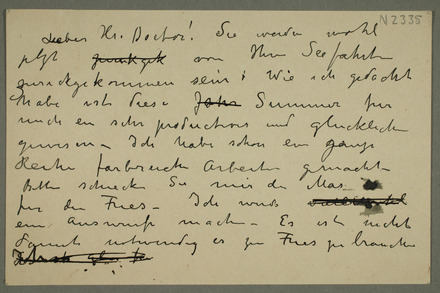 N 2335
Lieber Hr. Doctor! Sie werden wohl
jetzt zurückgek von Ihrer Seefahrt
zurückgekommen sein? Wie ich gedacht
habe ist diese Jahr Summer für
mich ein sehr productives und glücklich
gewesen – Ich habe schon ein ganze
Reihe farbereich Arbeiten gemacht –
Bitte schicken Sie mir die Mas
für den Fries – Ich werde
ein Auswurf machen – Es ist nicht
damit notwendig es zu Fries zu brauchen